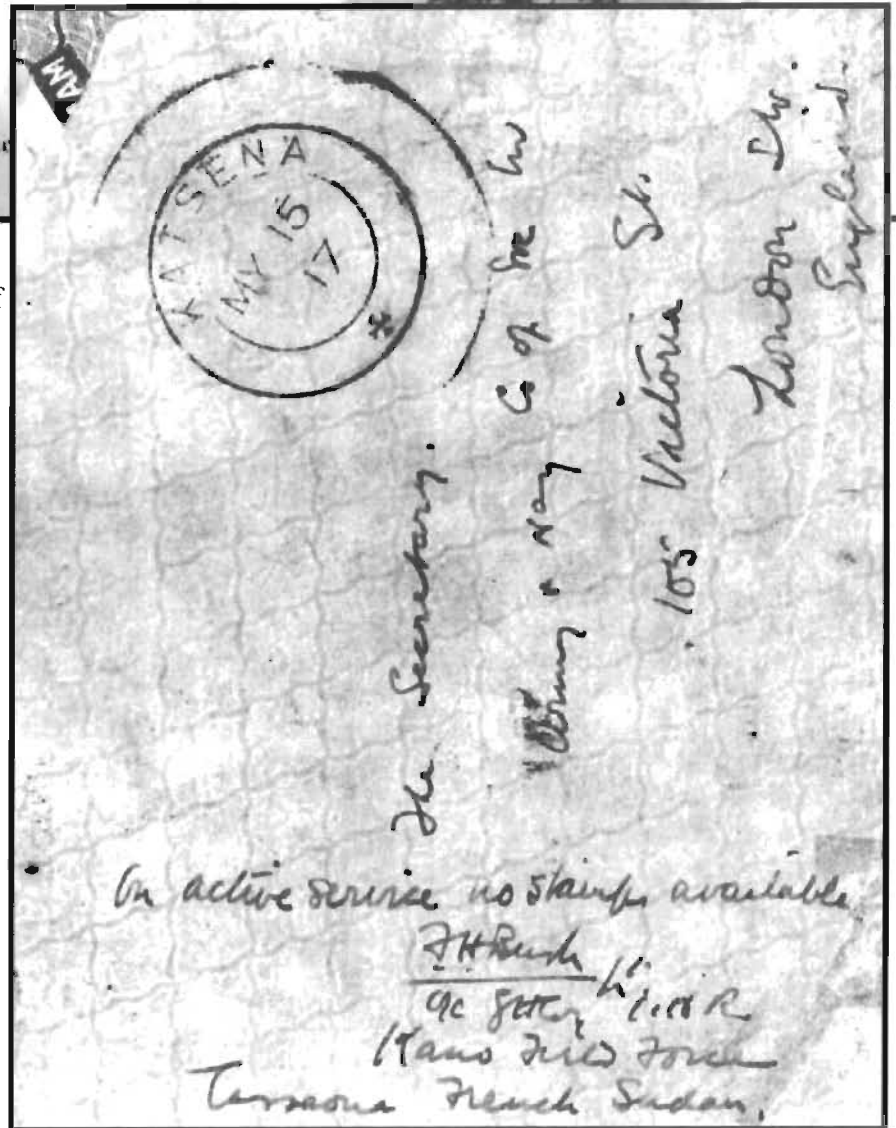 AM
KATSENA
MY 15
17
*
The Secretary.
Army & Navy Co op Soc Ltd
105 Victoria St.
London SW.
England.
On active service no stamps available
FHBush
Lt
Kano Field Force
Tessaoua French Sudan.